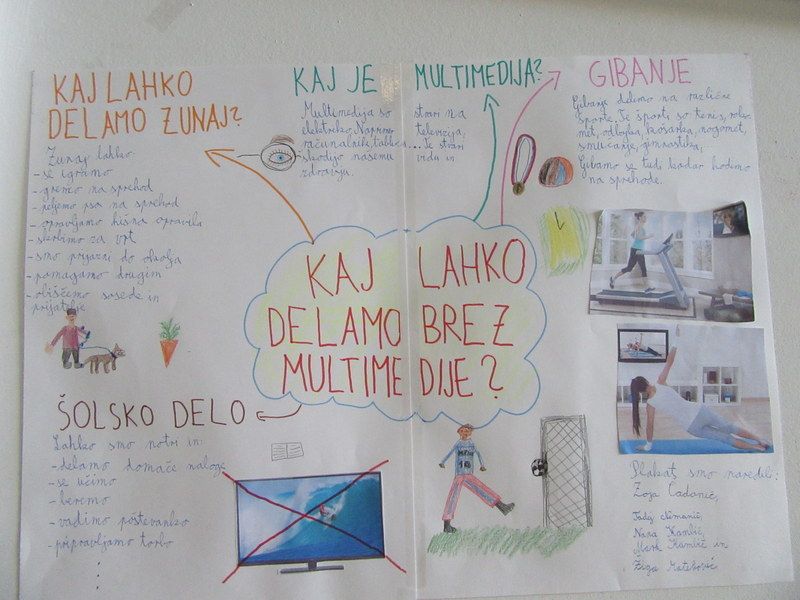 KAJ LAHKO
DELAMO ZUNAJ?
Zunaj lahko
- se igramo
- gremo na sprehod
- peljemo psa na sprehod
- opravljamo hišna opravila
- skrbimo za vrt
- smo prijazni do okolja
- pomagamo drugim
- obiščemo sosede in
prijatelje
KAJ JE MULTIMEDIJA?
Multimedija so stvari na
elektriko. Naprimer televizija,
računalnik, tablica... Te stvari
škodijo našemu vidu in
zdravju.
GIBANJE
Gibanje delimo na različne
športe. Te športi so tenis, roko-
met, odbojka, košarka, nogomet,
smučanje, gimnastika,
Gibamo se tudi kadar hodimo
na sprehode.
KAJ LAHKO
DELAMO BREZ
MULTIMEDIJE?
ŠOLSKO DELO
Lahko smo notri in:
- delamo domače naloge
- se učimo
- beremo
- vadimo poštevanko
- pripravljamo torbo
10
Plakat smo naredili:
Zoja
Tadej
Nara Kambič,
Mark Kambič in
Žiga